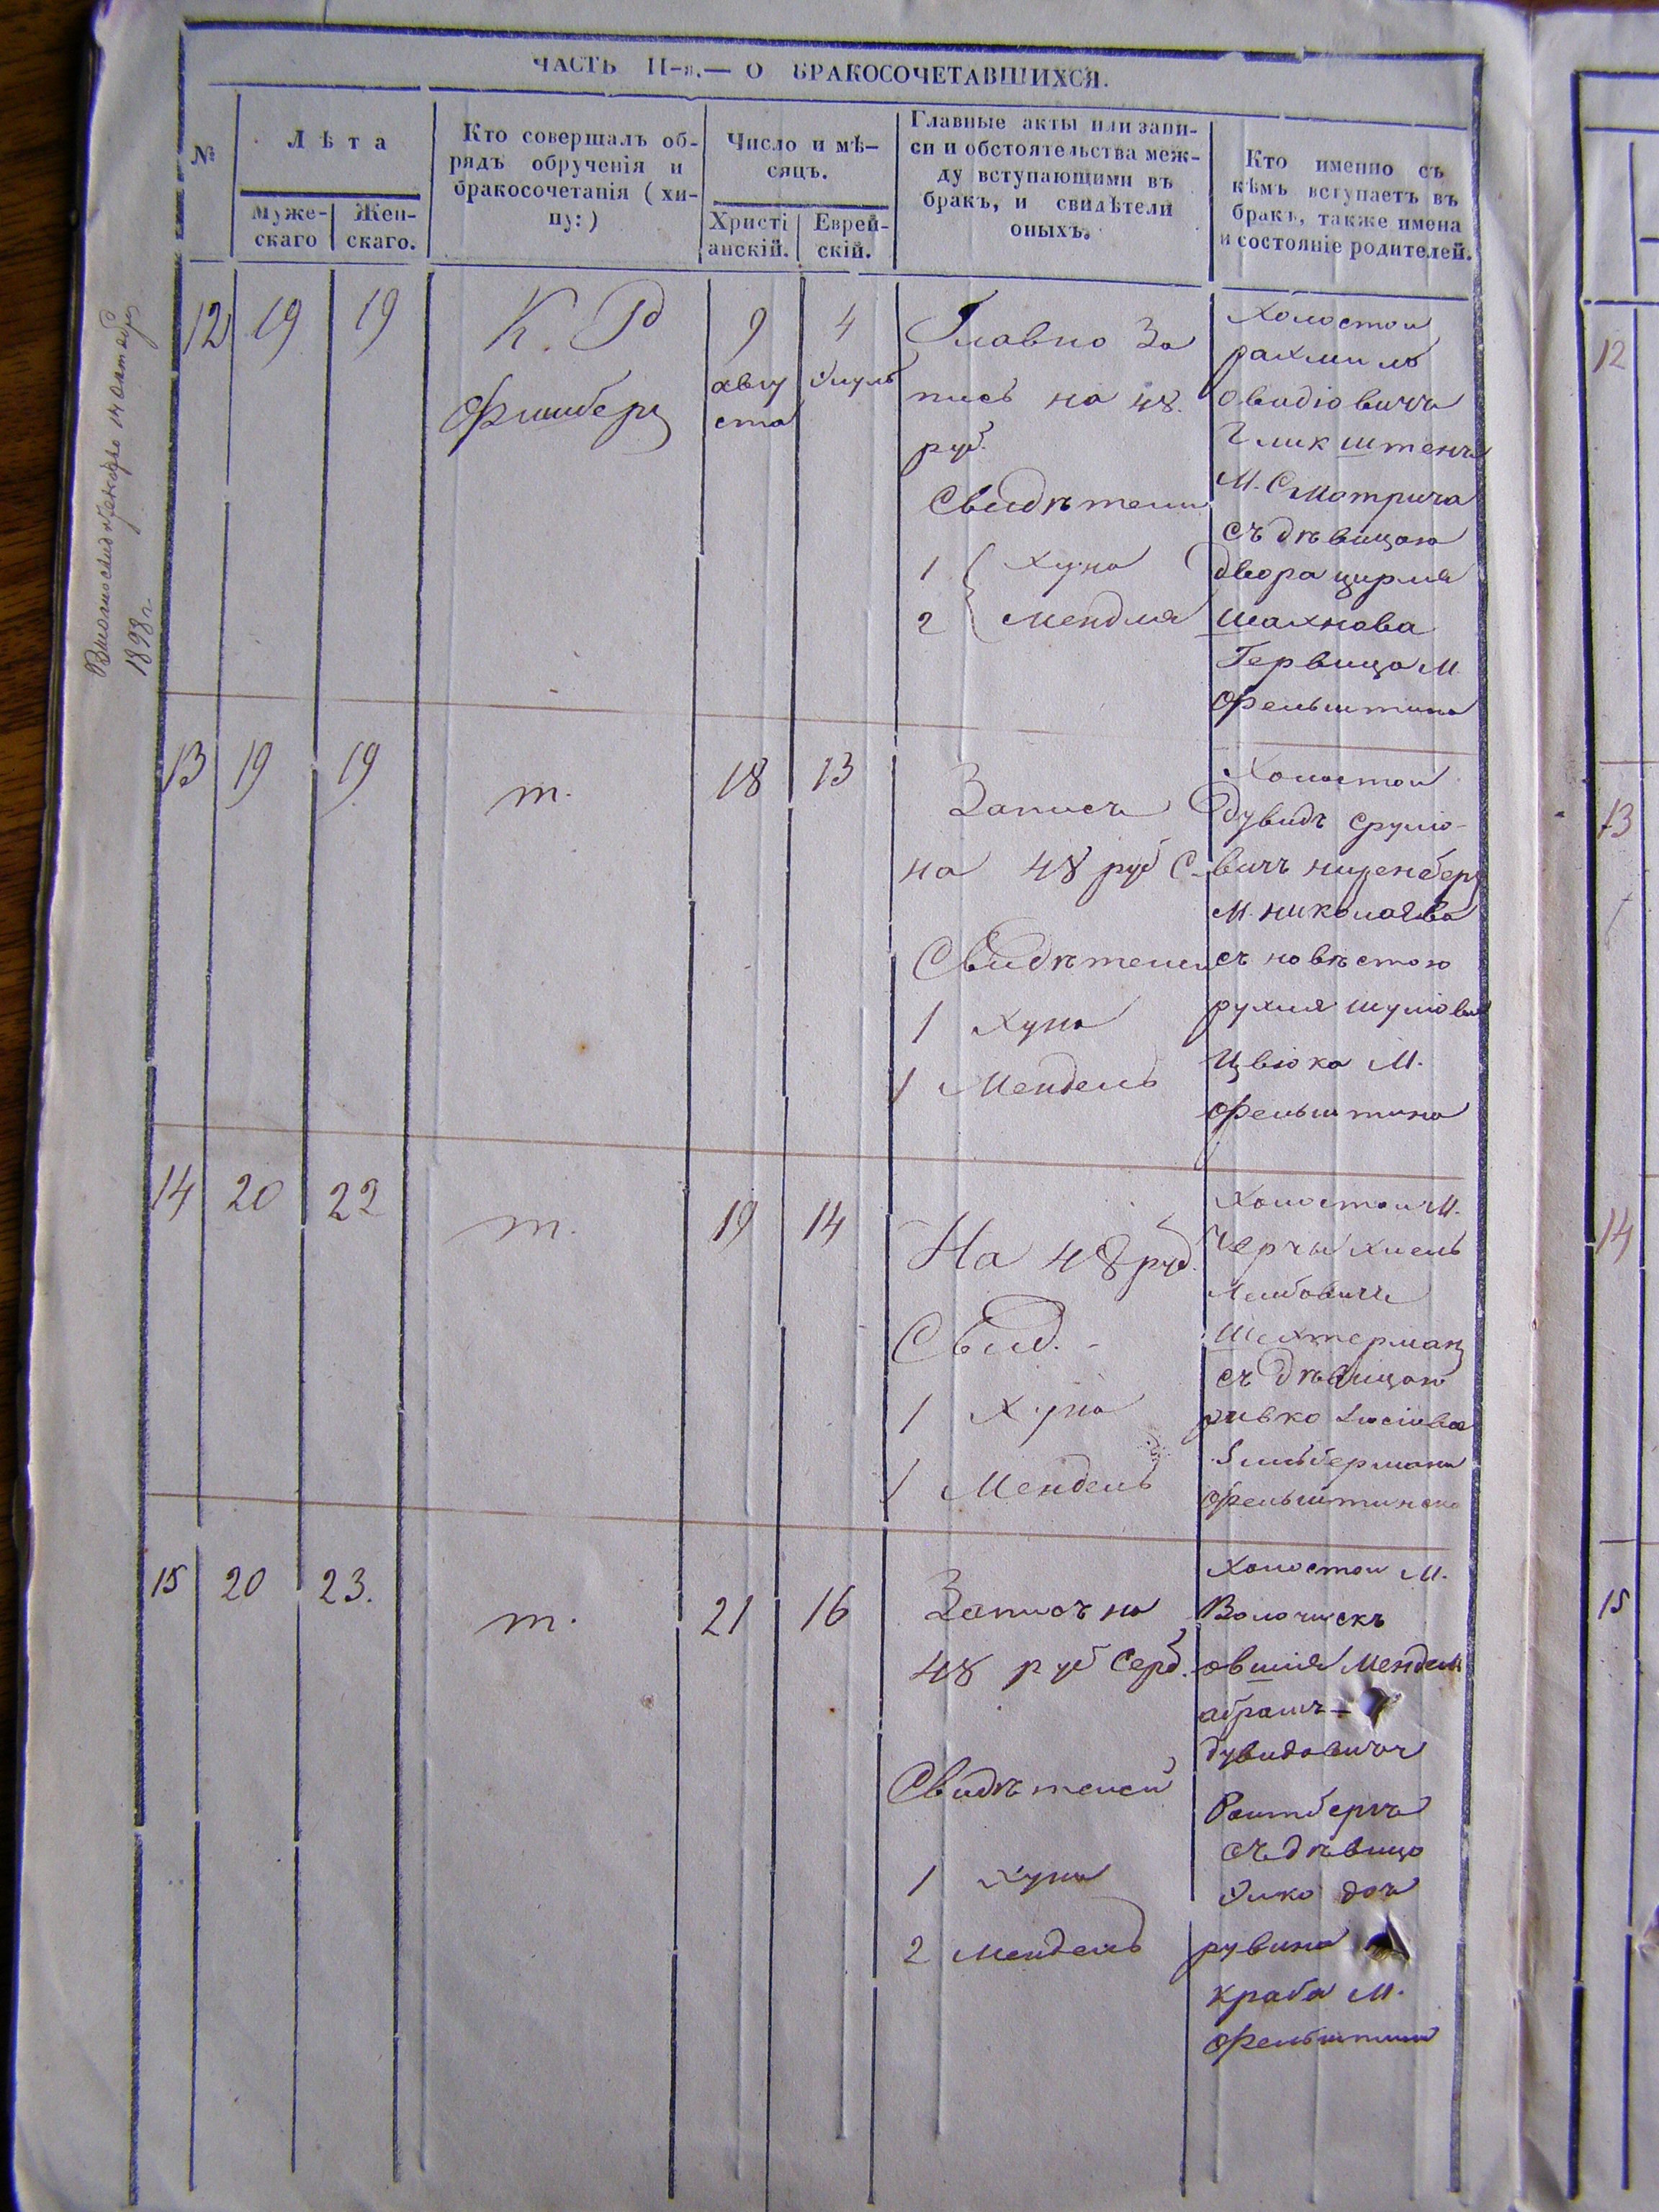 ЧАСТЬ II-я.— О БРАКОСОЧЕТАВШИХСЯ.
№
Лѣта
Муже-
скаго
Жен-
скаго.
Кто совершалъ об-
рядъ обрученія и
бракосочетанія (хи-
пу:)
Число и мѣ-
сяцъ.
Христі
анскій.
Еврей-
скій.
Главные акты или запи-
си и обстоятельства меж-
ду вступающими въ
бракъ, и свидѣтели
оныхъ.
Кто именно съ
кѣмъ вступаетъ въ
бракъ, также имена
и состояніе родителей.
1898 г.
12
19
19
К. Р
Фишберг
9
авгу
ста
4
Элуль
Главно За
пись на 48.
руб.
Свидѣтели
1 Хуна
2 Мендля
Холостой
рахмиль
Овидіовичъ
Гликштенъ
М. Смотрича
съ дѣвицою
двора цирля
Шахнова
Гервица М.
Фельштина
13
19
19
т.
18
13
Записъ
на 48 руб С.
Свидѣтели
1 Хуна
1 Мендель
Холостой
Дувидъ Сруліо-
вичъ ниренберг
М. николаева
съ невѣстою
рухля шуліова
Цвіока М.
Фельштина
14
20
22
т.
19
14
На 48 руб.
Свид. -
1 Хуна
1 Мендель
Холостой М.
Черчы Хиель
Лейбовичъ
Шехтерман
съ дѣвицою
ривка
Зильбермана
15
20
23.
т.
21
16
Записъ на
48 руб Серб.
Свидѣтелей
1 Хуна
2 Мендель
Холостой М.
Волочискъ
овшія Мендель
абрамъ-
дувидовичъ
Роитбергъ
съ дѣвицо
Элко доч
рувина
краба М.
Фельштина
12
13
14
15